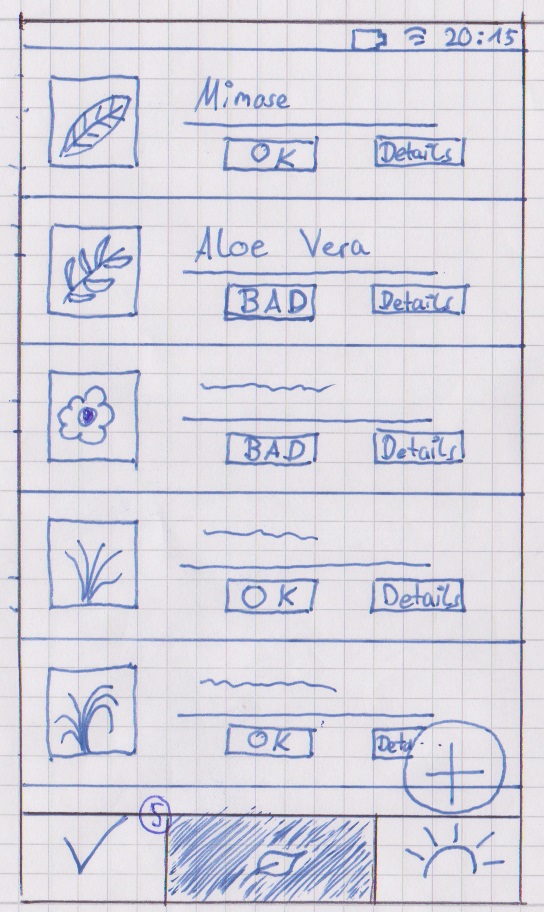 20:15
Mimose
OK Details
Aloe Vera
BAD Details
BAD Details
OK Details
OK Deta
5